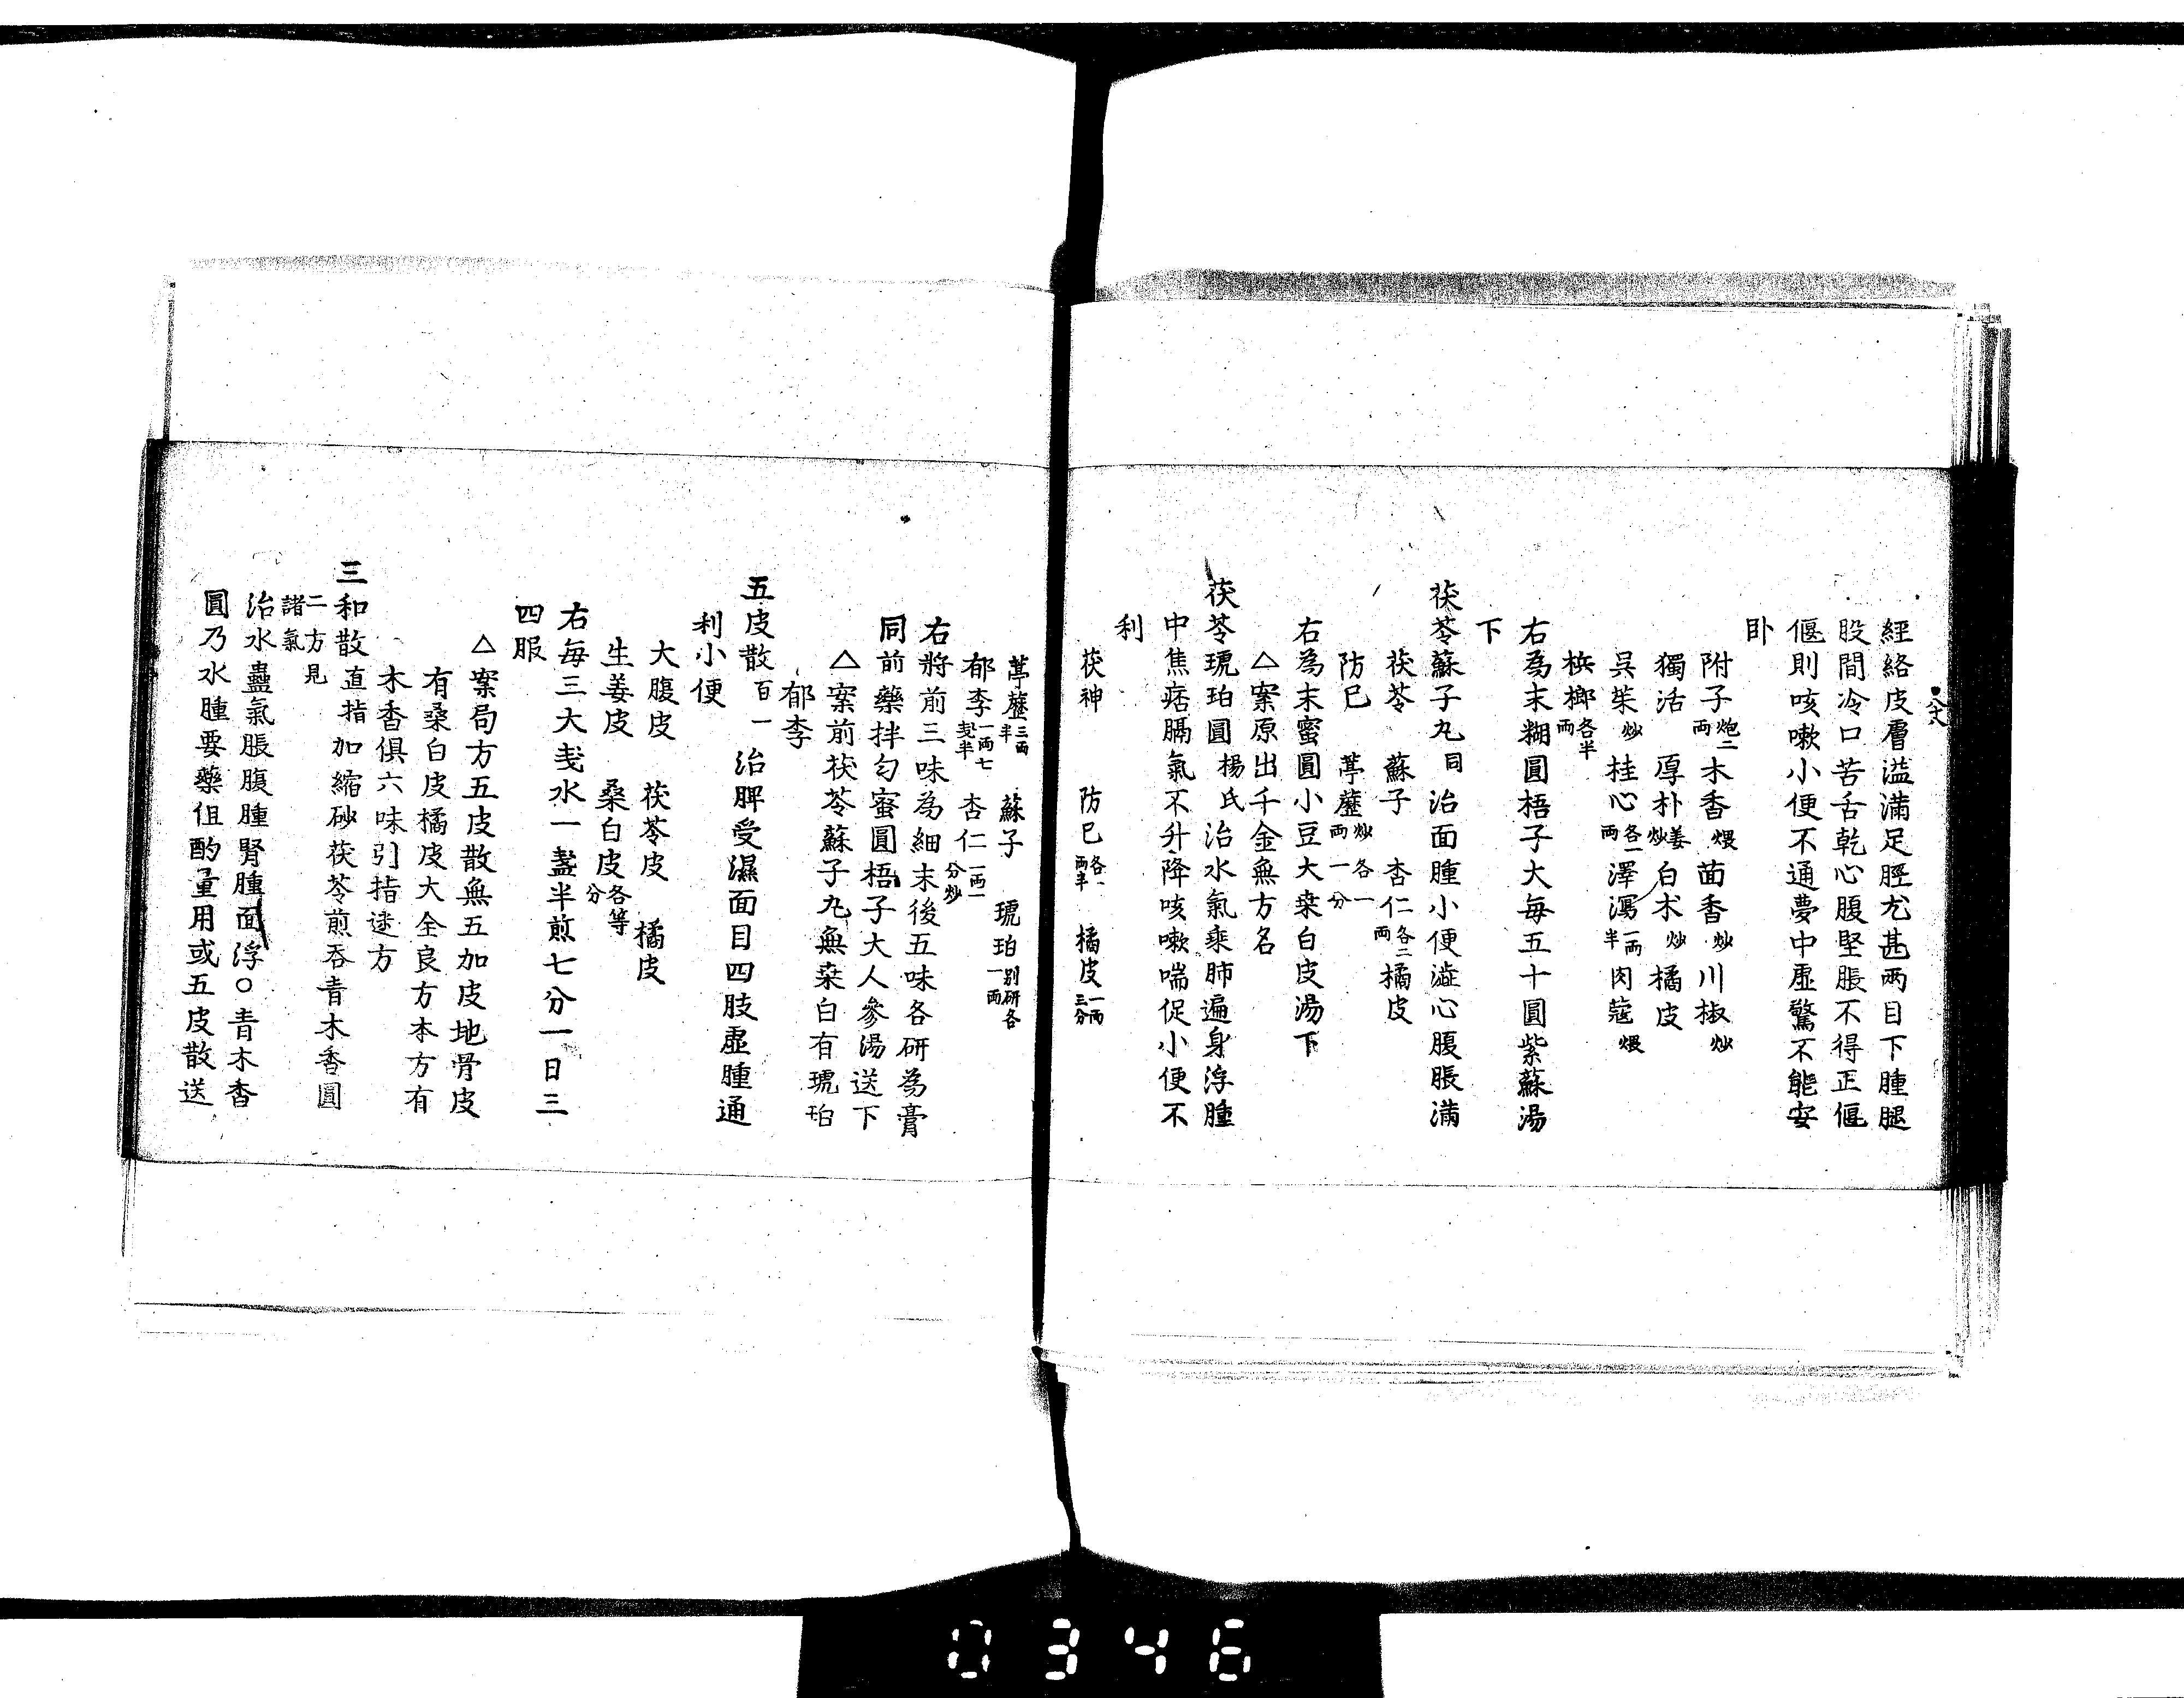 經絡皮膚溢滿足脛尤甚两目下腫腿
股間冷口苦舌乾心腹堅脹不得正偃
偃則咳嗽小便不通夢中虚驚不能安
卧
附子炮二両木香煨茴香炒川椒炒
獨活 厚朴姜炒白朮炒橘皮
呉茱炒桂心各一両澤瀉一両半肉蔲煨
梹榔各半両
右為末糊圓梧子大毎五十圓紫蘇湯
下
茯苓蘇子丸同治面腫小便澁心腹脹滿
茯苓 蘇子 杏仁各二両橘皮
防已 葶藶炒各一両一分
右為末蜜圓小豆大桒白皮湯下
△案原出千金無方名
茯苓琥珀圓楊氏治水氣乘肺遍身浮腫
中焦痞膈氣不升降咳嗽喘促小便不
利
茯神 防已各一両半 橘皮一両三分
葶藶三両半 蘇子 琥珀別研各一両
郁李一両七戔半 杏仁一両一分炒
右將前三味為細末後五味各研為膏
同前藥拌匀蜜圓梧子大人參湯送下
△案前茯苓蘇子丸無桒白有琥珀
郁李
五皮散百一 治脾受濕面目四肢虚腫通
利小便
大腹皮 茯苓皮 橘皮
生姜皮 桑白皮各等分
右毎三大戔水一盞半煎七分一日三
四服
△案局方五皮散無五加皮地骨皮
有桑白皮橘皮大全良方本方有
木香俱六味引指迷方
三和散直指加縮砂茯苓煎吞青木香圓
二方見諸氣
治水蠱氣脹腹腫腎腫面浮○青木香
圓乃水腫要藥但酌量用或五皮散送
0346